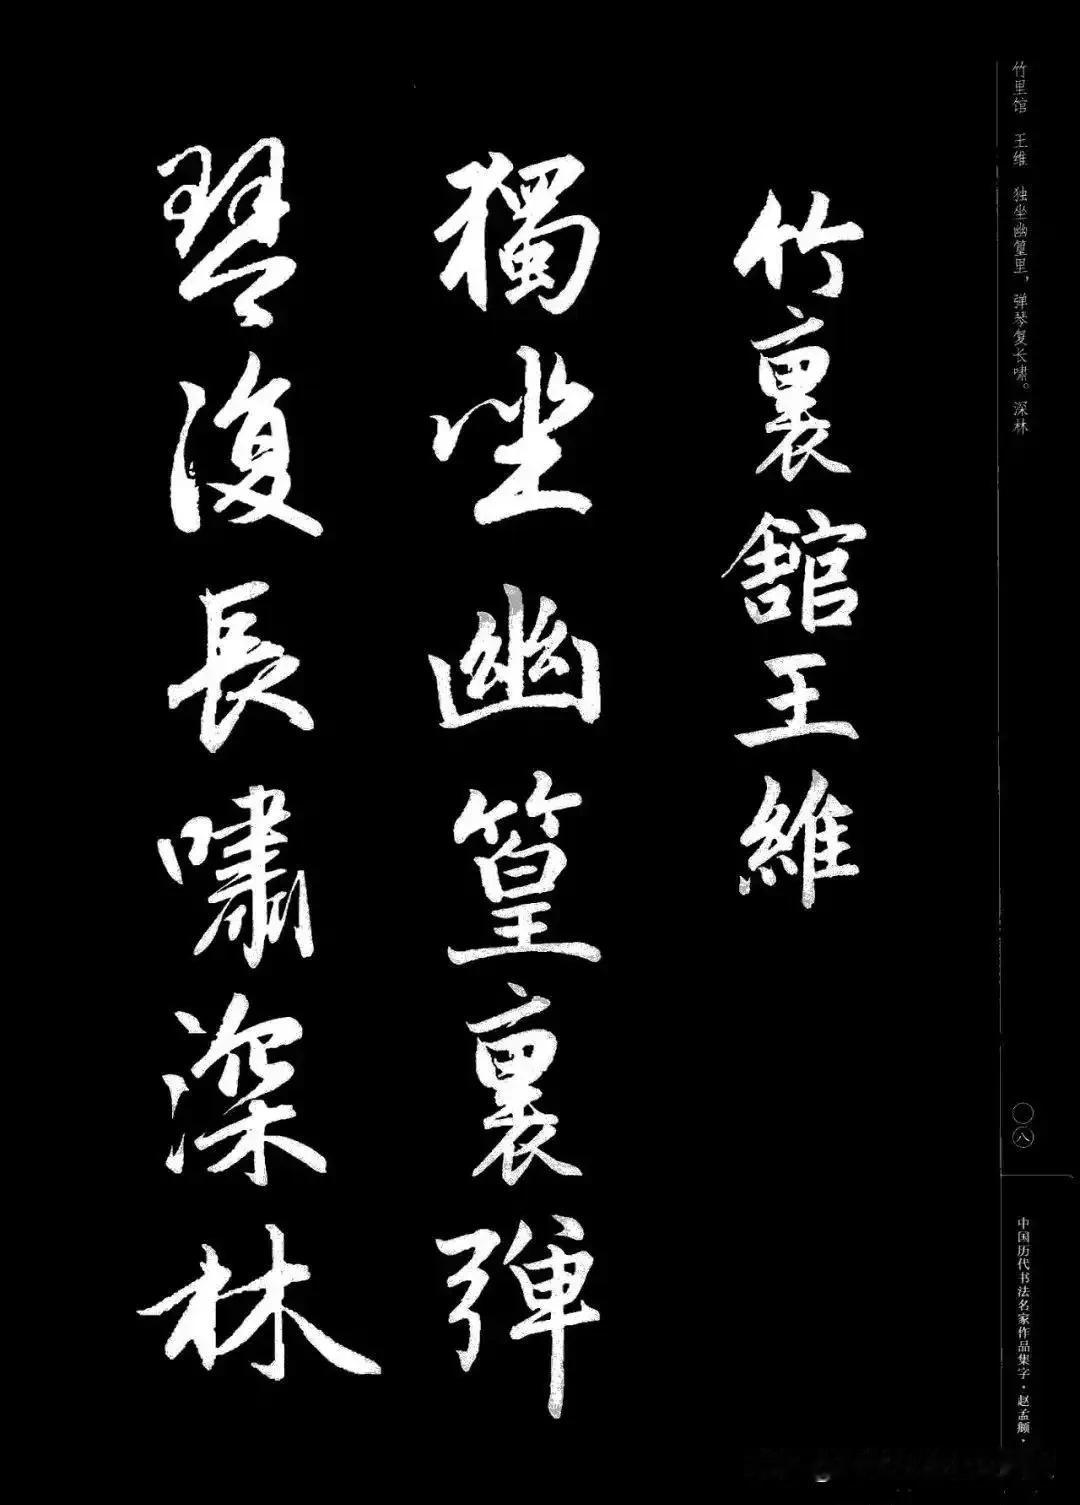 竹里馆 王维 独坐幽篁里，弹琴复长啸。深林
〇八
中国历代书法名家作品集字·赵孟頫·
竹裏館王維
獨坐幽篁裏彈
琴復長嘯深林